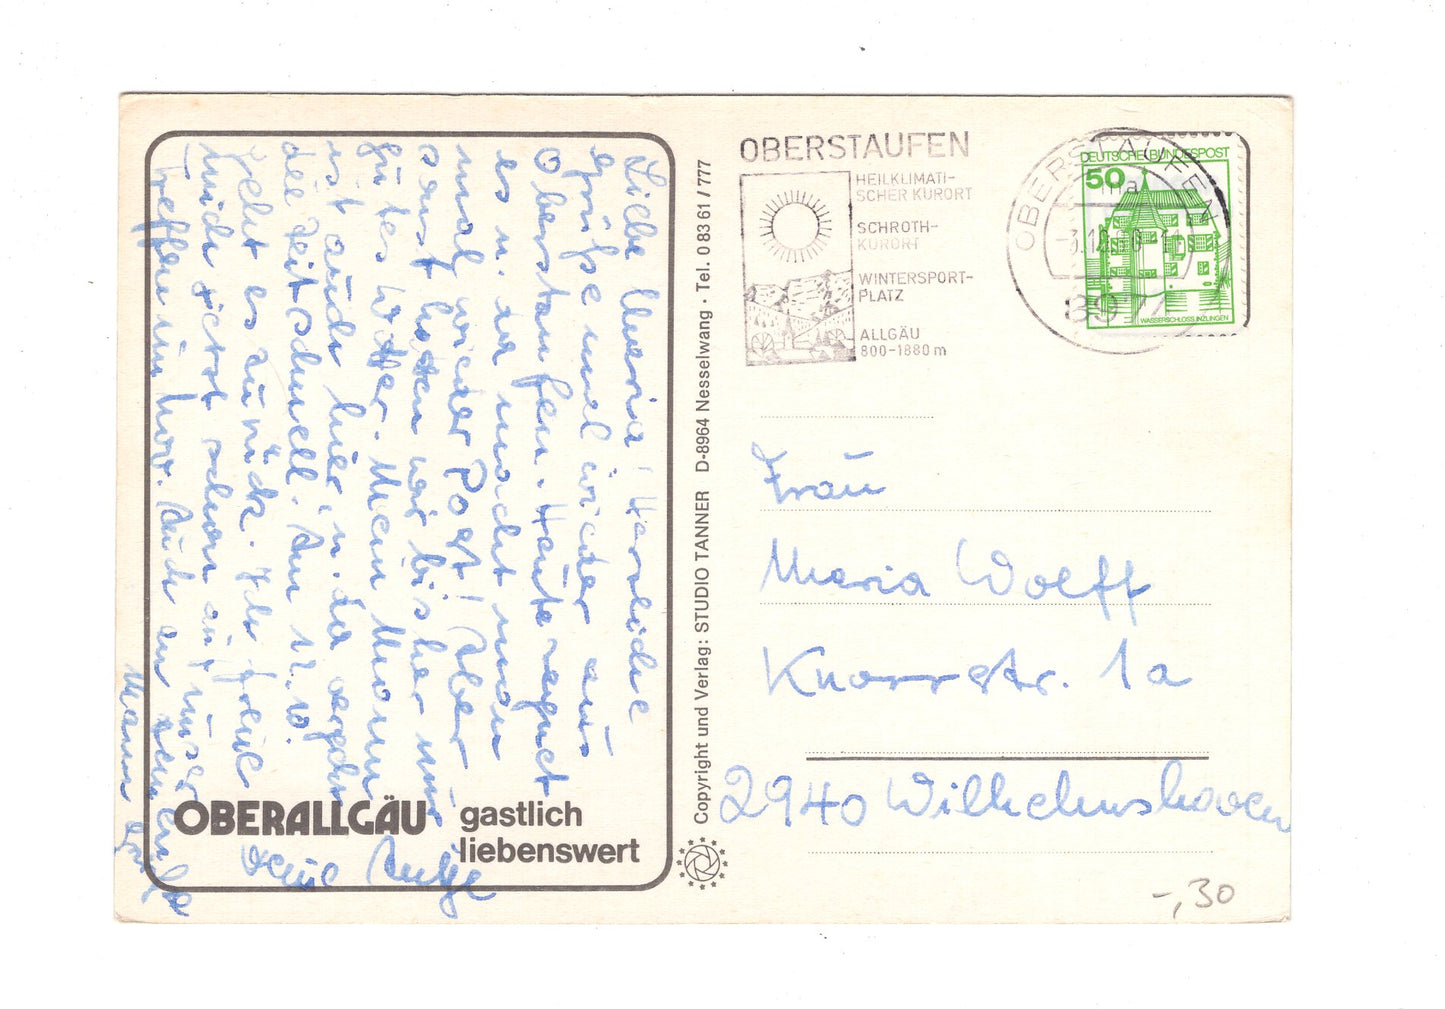 Liebe Maria! Herzliche
Grüße mal wieder aus
Oberstaufen. Heute regnet
es u. da macht man
mal wieder Post! Aber
sonst hatten wir bisher nur
gutes Wetter. Mein Mann
ist auch hier, u. da vergeht
die Zeit schnell. Am 12.10.
geht es zurück. Ich freue
mich jetzt schon auf unser
Treffen im Nov. Auch an
Mann Grüße
Deine Antje
OBERALLGÄU gastlich
liebenswert
Copyright und Verlag: STUDIO TANNER D-8964 Nesselwang · Tel. 0 83 61 / 777
OBERSTAUFEN
HEILKLIMATI-
SCHER KURORT
SCHROTH-
KURORT
WINTERSPORT-
PLATZ
ALLGÄU
800-1880 m
OBERSTAUFEN
897
DEUTSCHE BUNDESPOST
50
WASSERSCHLOSS INZLINGEN
Frau
Maria Wolff
Knorrstr. 1a
2940 Wilhelmshaven
-,30